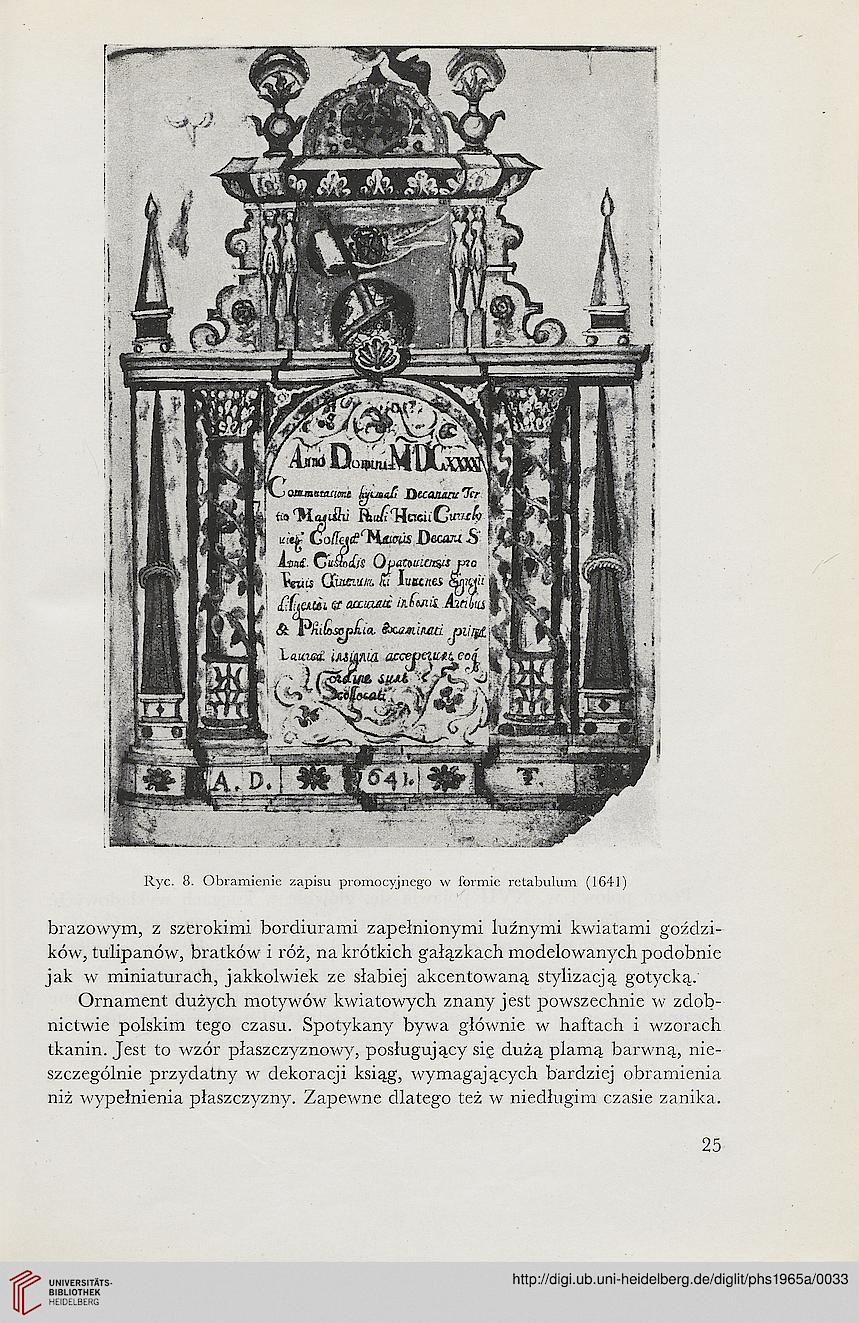 Anno Domini MDCXXXXI
Commutatione hyemali Decanatu Ter
tio Magistri Pauli Hercii
Collegæ Maioris Decani S
Annæ Custodis Opatouiensis pro
Iuuenes Egregii
et accurate in bonis Artibus
& Philosophia examinati primæ
Laureæ insignia acceperunt eoq
ordine sunt
collocati
A. D. 1641. T.
Ryc. 8. Obramienie zapisu promocyjnego w formie retabulum (1641)
brazowym, z szerokimi bordiurami zapełnionymi luźnymi kwiatami goździ-
ków, tulipanów, bratków i róż, na krótkich gałązkach modelowanych podobnie
jak w miniaturach, jakkolwiek ze słabiej akcentowaną stylizacją gotycką.
Ornament dużych motywów kwiatowych znany jest powszechnie w zdob-
nictwie polskim tego czasu. Spotykany bywa głównie w haftach i wzorach
tkanin. Jest to wzór płaszczyznowy, posługujący się dużą plamą barwną, nie-
szczególnie przydatny w dekoracji ksiąg, wymagających bardziej obramienia
niż wypełnienia płaszczyzny. Zapewne dlatego też w niedługim czasie zanika.
25
UNIVERSITÄTS-
BIBLIOTHEK
HEIDELBERG
http://digi.ub.uni-heidelberg.de/diglit/phs1965a/0033